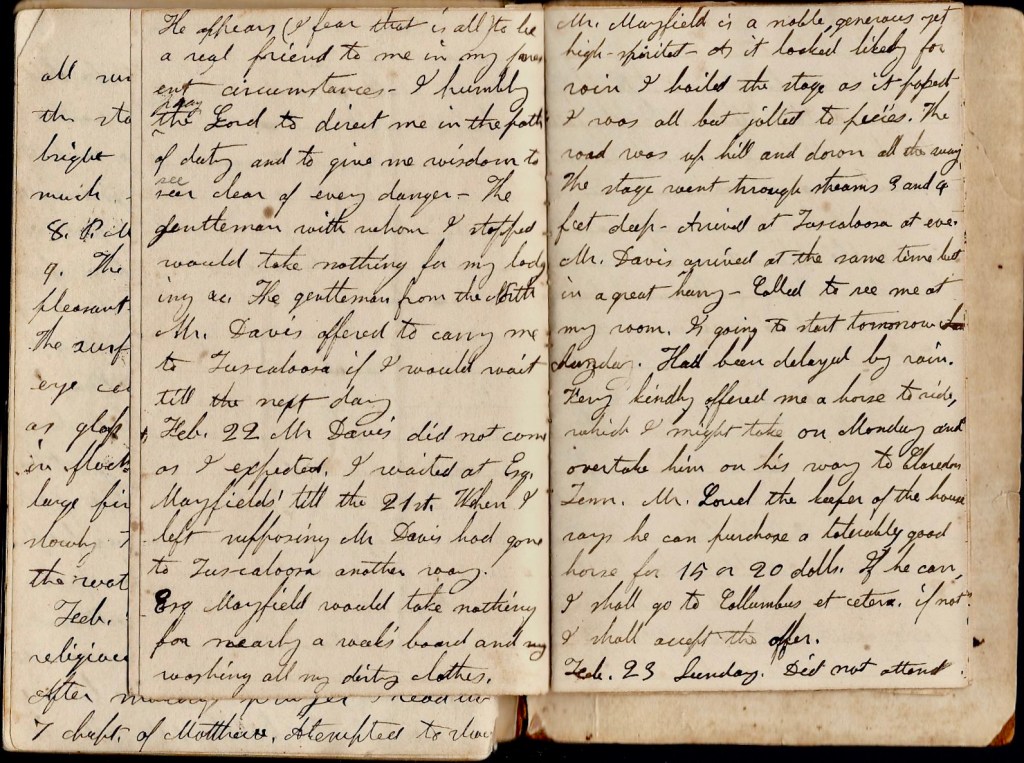 all
the
bright
much
8.
9. The
pleasant
The surf
eye
as glass
in flock
large
slowly
the
Feb.
religious
after
7 chapt. of Matthew. Attempted to
He appears (I fear that is all) to be
a real friend to me in my pres
ent circumstances - I humbly
pray
the Lord to direct me in the path
of duty and to give me wisdom to
see
clear of every danger - The
gentleman with whom I stopped
would take nothing for my lodg
ing &c. The gentleman from the North
Mr. Davis offered to carry me
to Tuscaloosa if I would wait
till the next day
Feb. 22 Mr Davis did not com
as I expected. I waited at Esq.
Mayfields' till the 21st. When I
left supposing Mr Davis had gone
to Tuscaloosa another way.
Esq Mayfield would take nothing
for nearly a weeks board and my
washing all my dirty clothes.
Mr. Mayfield is a noble, generous yet
high-spirited - As it looked likely for
rain I hailed the stage as it passed
I was all but jolted to peices. The
road was up hill and down all the way
The stage went through streams 3 and 4
feet deep - Arrived at Tuscaloosa at eve.
Mr. Davis arrived at the same time but
in a great hurry - Called to see me at
my room. Is going to start tomorrow
Sunday. Had been delayed by rain.
Very kindly offered me a horse to ride,
which I might take on Monday and
overtake him on his way to
Tenn. Mr. Loud the keeper of the house
says he can purchase a tolerably good
horse for 15 or 20 dolls. If he can,
I shall go to Collumbus et cetera. if not
I shall accept the offer.
Feb. 23 Sunday. Did not attend